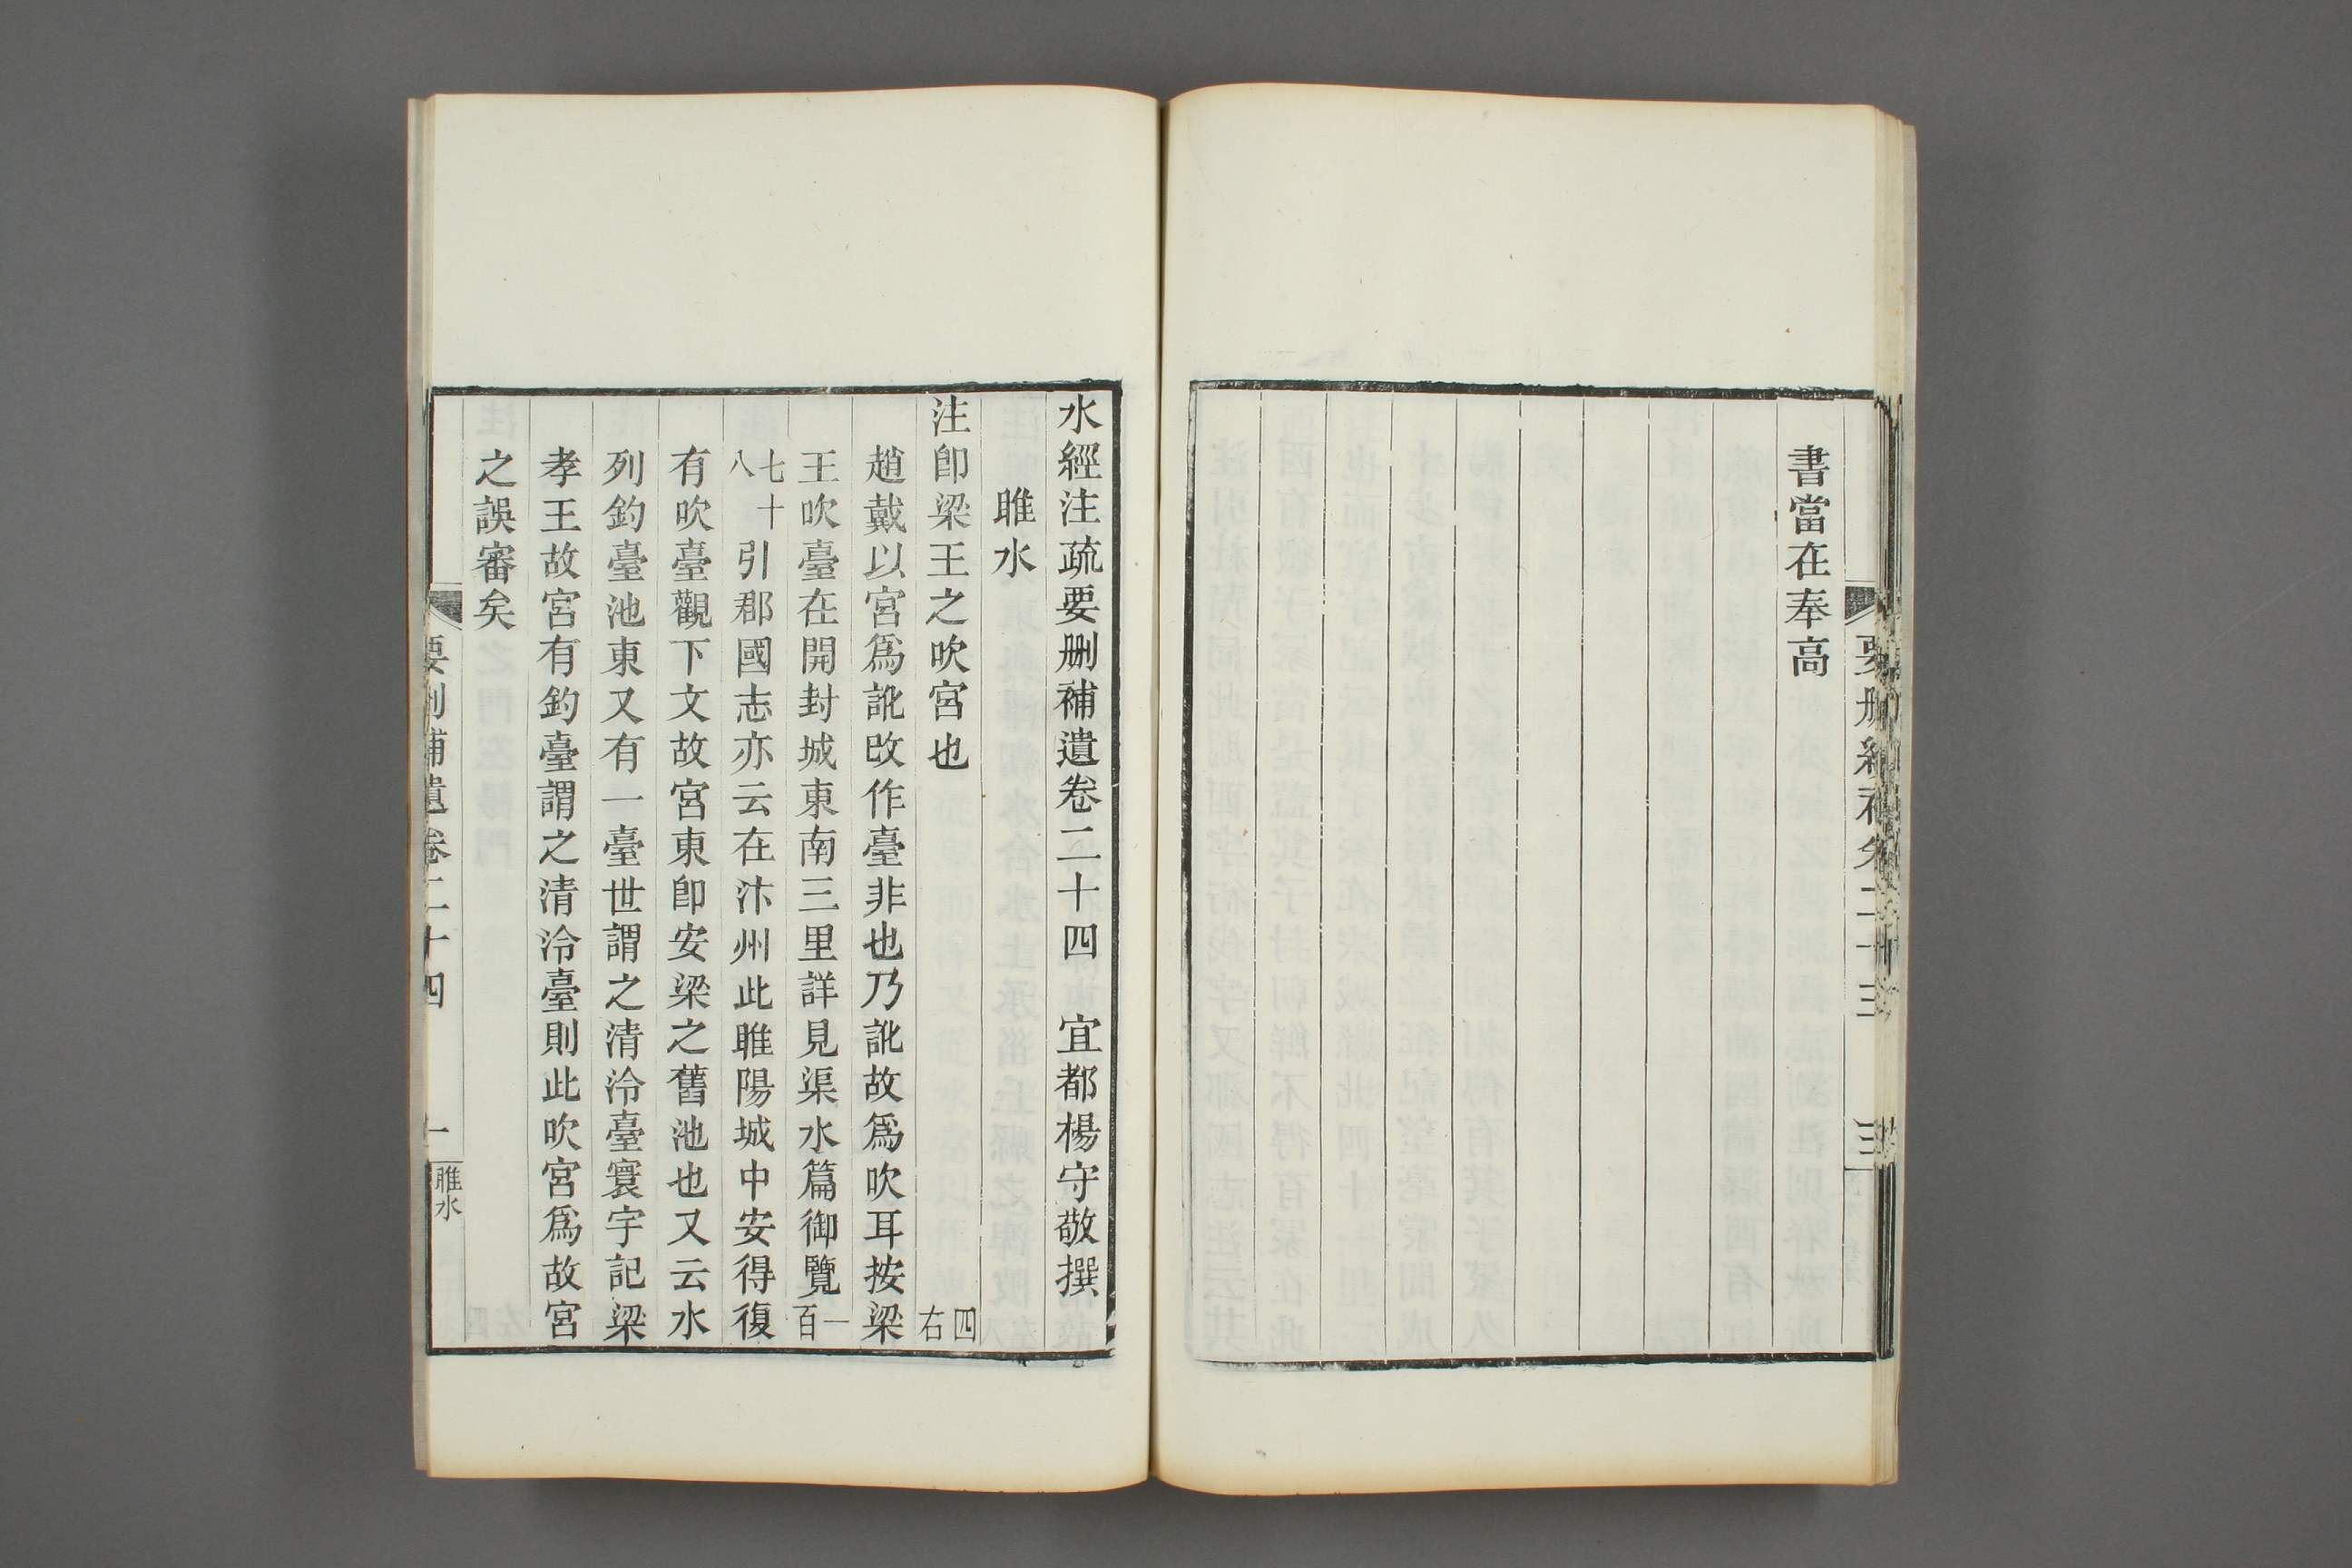 書當在奉高
水經注疏要刪補遺卷二十四　宜都楊守敬撰
睢水
注卽梁王之吹宮也　四右
趙戴以宮爲訛改作臺非也乃訛故爲吹耳按梁
王吹臺在開封城東南三里詳見渠水篇御覽一百
七十八引郡國志亦云在汴州此睢陽城中安得復
有吹臺觀下文故宮東卽安梁之舊池也又云水
列釣臺池東又有一臺世謂之清泠臺寰宇記梁
孝王故宮有釣臺謂之清泠臺則此吹宮爲故宮
之誤審矣
要刪補遺卷二十四　一　睢水